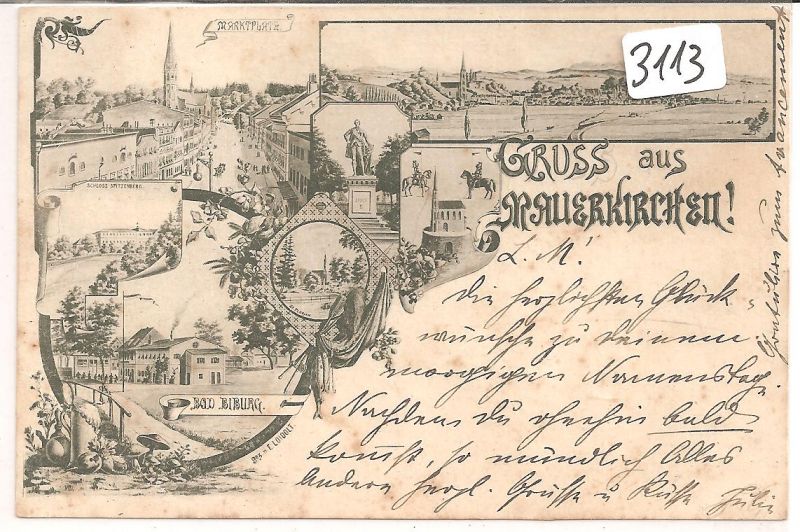 MARKTPLATZ.
3113
GRUSS aus
MAUERKIRCHEN!
SCHLOSS SPITZENBERG.
BAD BIBURG.
L. M.!
Die herzlichsten Glück-
wünsche zu deinem
morgigen Namenstage.
Nachdem du ohnehin bald
kommst, so mündlich Alles
Andere herzl. Grüsse u Küsse Julie
Gratuliere zum Avancement